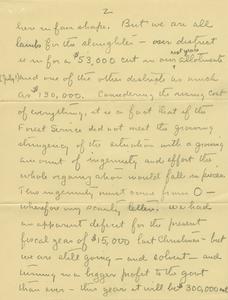 2
here in fair shape. But we are all
lambs for the slaughter - our district
next year's
is in for a $53,000 cut in our allotments
and one of the other districts as much
as $130,000. Considering the rising cost
of everything, it is a fact that if the
Forest Service did not meet the growing
stringency of the situation with a growing
amount of ingenuity and effort the
whole organization would fall in pieces.
This ingenuity must come from O -
wherefore my scanty letters. We had
an apparent deficit for the present
fiscal year of $15,000 last Christmas - but
we are still going - and solvent - and
turning in a bigger profit to the govt
than ever - this year it will be $300,000 net